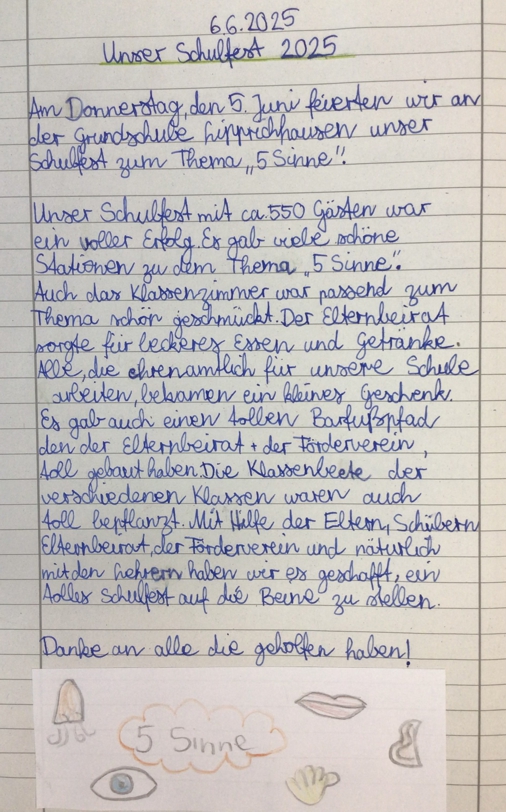 6.6.2025
Unser Schulfest 2025
Am Donnerstag, den 5. Juni feierten wir an
der Grundschule Lipprichhausen unser
Schulfest zum Thema „5 Sinne“.
Unser Schulfest mit ca. 550 Gästen war
ein voller Erfolg. Es gab viele schöne
Stationen zu dem Thema „5 Sinne“.
Auch das Klassenzimmer war passend zum
Thema schön geschmückt. Der Elternbeirat
sorgte für leckeres Essen und Getränke.
Alle, die ehrenamtlich für unsere Schule
arbeiten, bekamen ein kleines Geschenk.
Es gab auch einen tollen Barfußpfad
den der Elternbeirat + der Förderverein,
toll gebaut haben. Die Klassenbeete der
verschiedenen Klassen waren auch
toll bepflanzt. Mit Hilfe der Eltern, Schülern
Elternbeirat, der Förderverein und natürlich
mit den Lehrern haben wir es geschafft, ein
tolles Schulfest auf die Beine zu stellen.
Danke an alle die geholfen haben!
5 Sinne